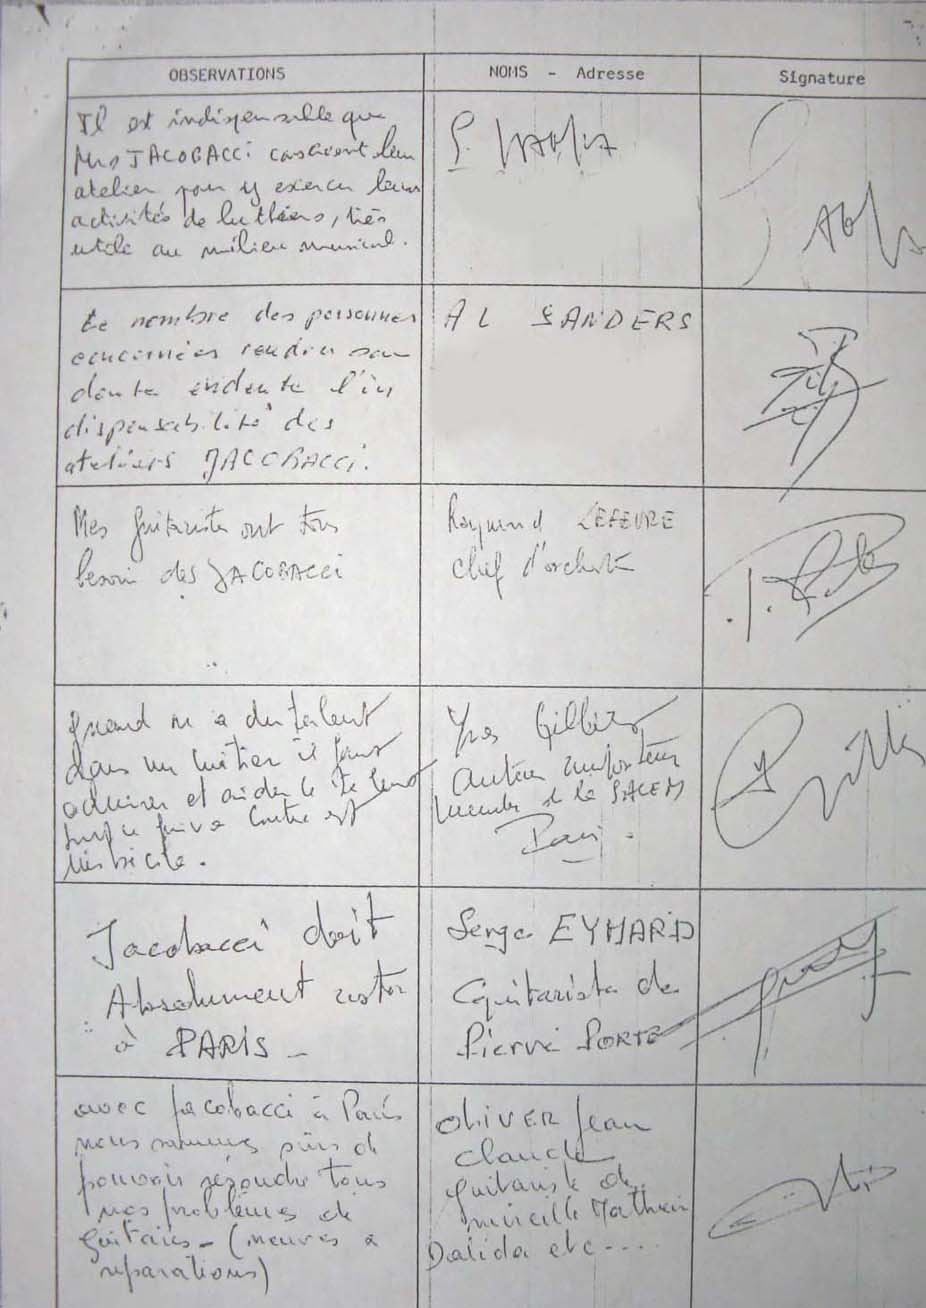 OBSERVATIONS
NOMS - Adresse
Signature
Il est indispensable que
Mrs JACOBACCI conservent leur
atelier pour y exercer leurs
activités de luthiers, très
utile au milieu musical.
Le nombre des personnes
concernées rendra sans
doute évidente l'in
dispensabilité des
ateliers JACOBACCI.
AL SANDERS
Mes guitaristes ont tous
besoin des JACOBACCI
Raymond LEFEVRE
chef d'orchestre
Quand on a du talent
dans un métier il faut
admirer et aider le talent
tout ce qui va contre est
imbécile.
Yves Gilbert
Auteur compositeur
membre de la SACEM
Paris.
Jacobacci doit
Absolument rester
à PARIS -
Serge EYMARD
Guitariste de
Pierre PORTE
avec Jacobacci à Paris
nous sommes sûrs de
pouvoir résoudre tous
nos problèmes de
guitares - (neuves &
réparations)
OLIVER Jean
Claude
guitariste de
Mireille Mathieu
Dalida etc ----